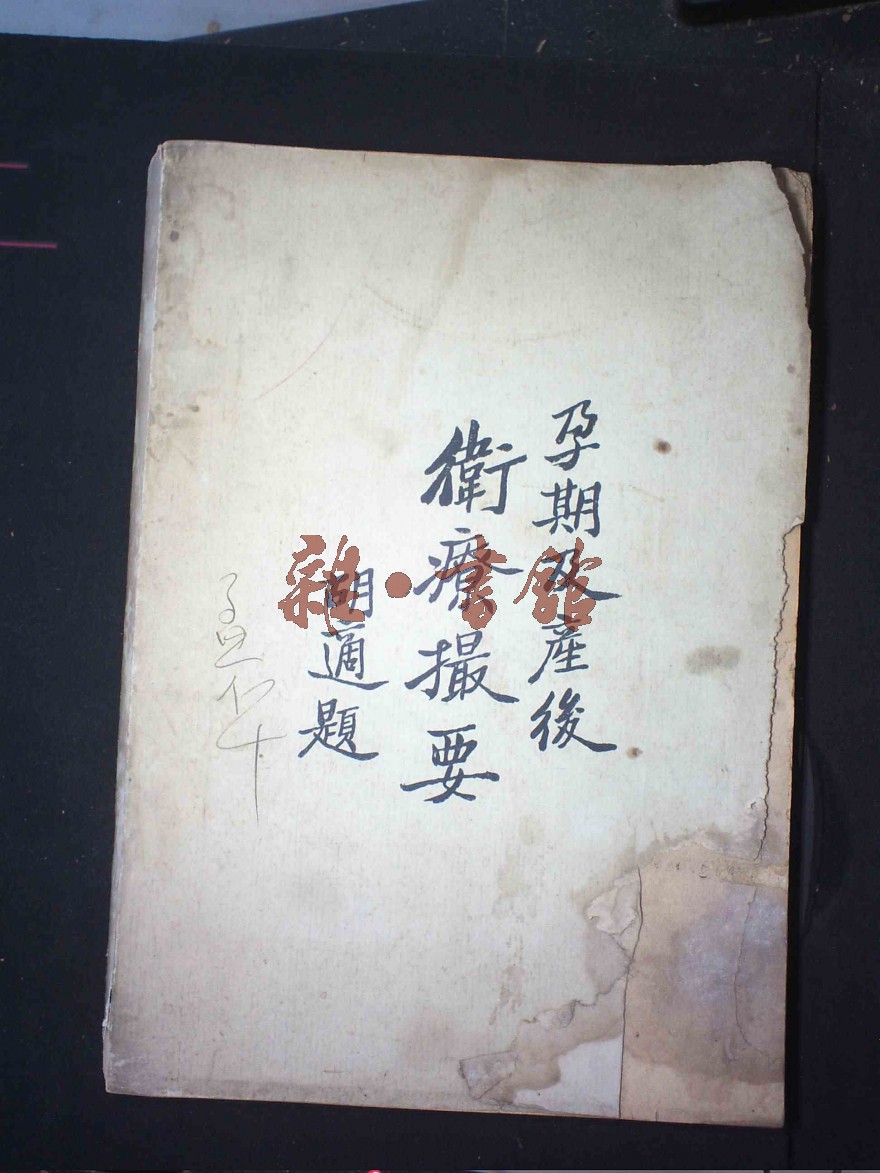 孕期及產後
衛療撮要
胡適題
孟仁
雜·書館